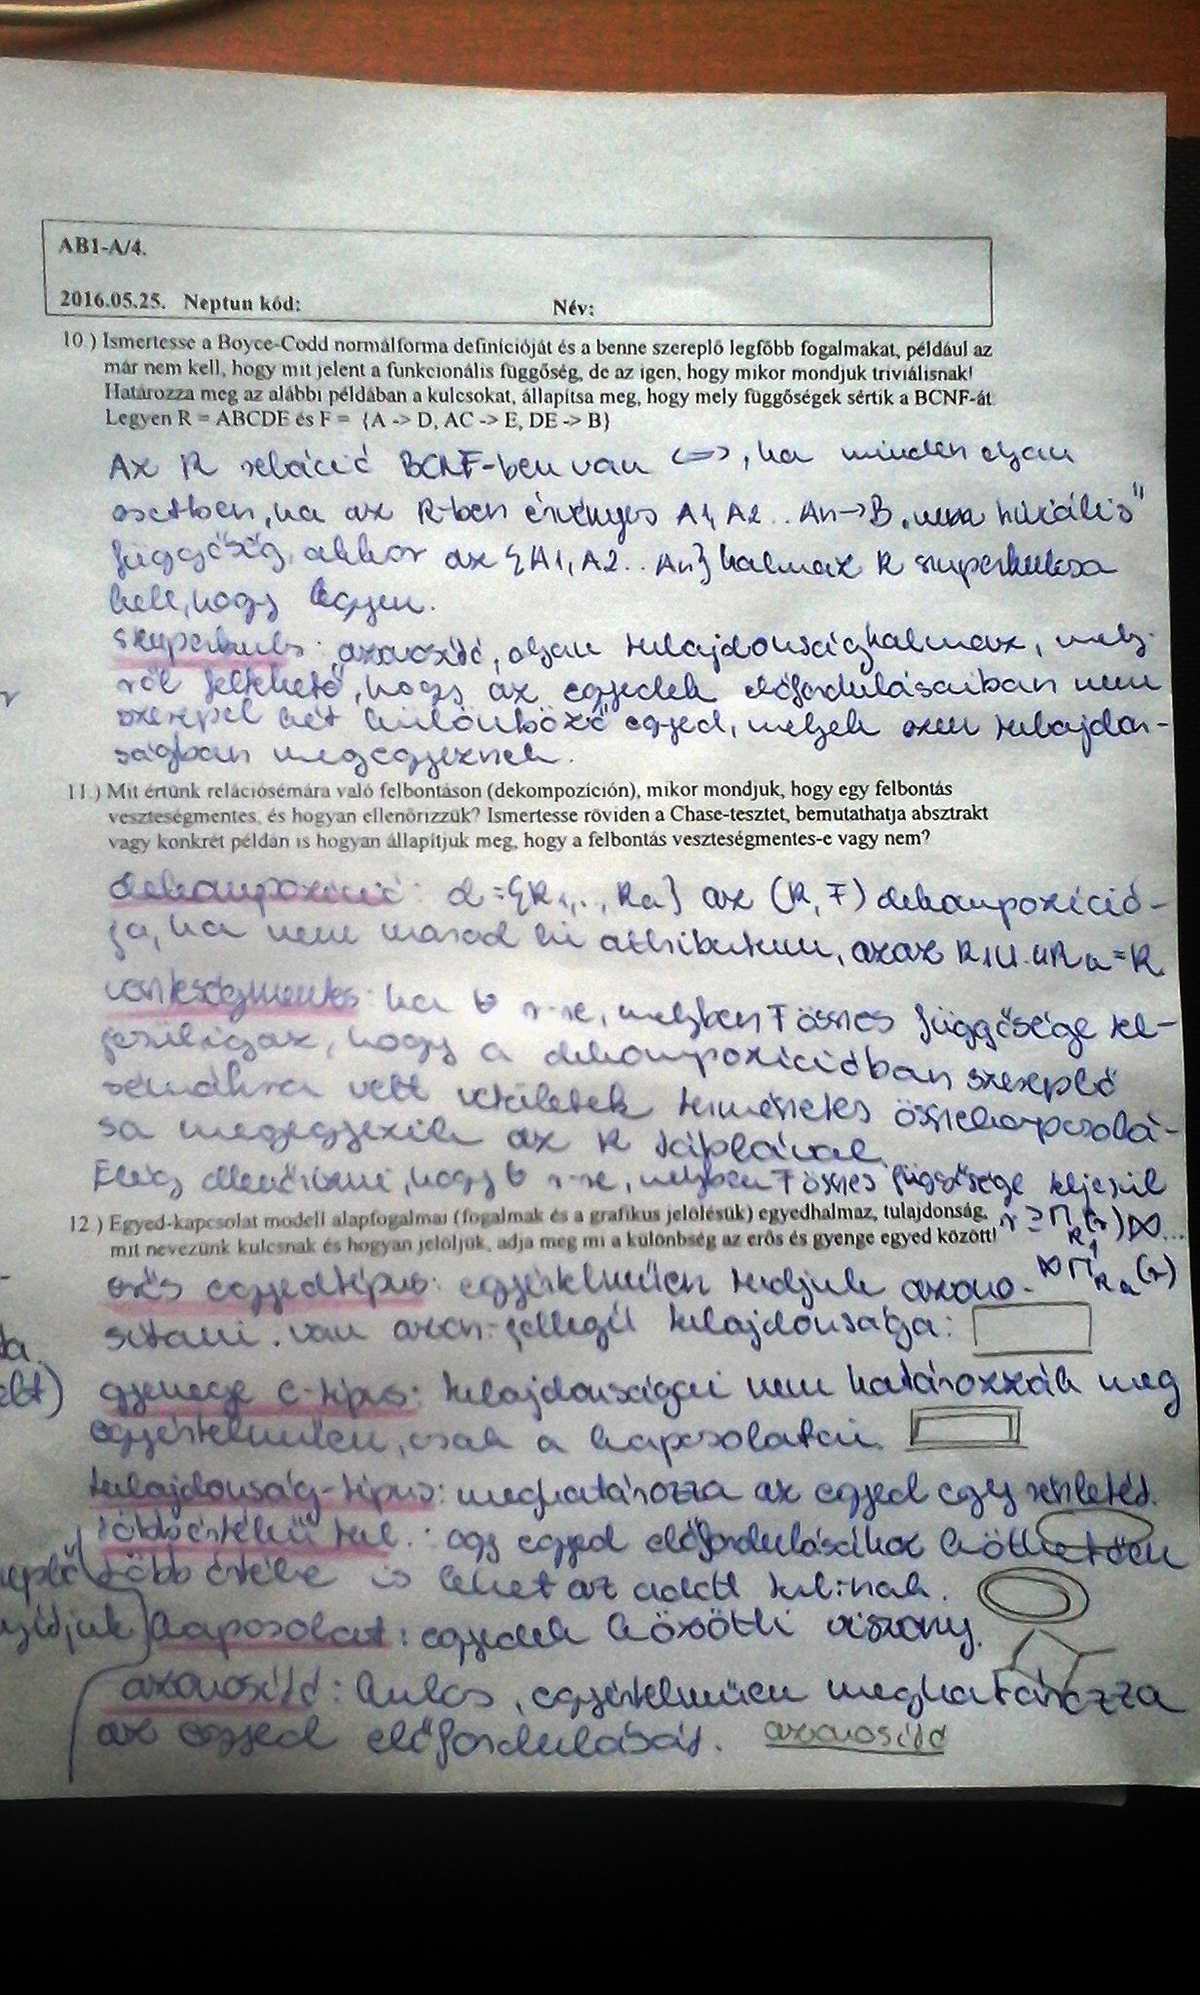 AB1-A/4.
2016.05.25. Neptun kód: Név:
10.) Ismertesse a Boyce-Codd normálforma definícióját és a benne szereplő legfőbb fogalmakat, például az
már nem kell, hogy mit jelent a funkcionális függőség, de az igen, hogy mikor mondjuk triviálisnak!
Határozza meg az alábbi példában a kulcsokat, állapítsa meg, hogy mely függőségek sértik a BCNF-át
Legyen R = ABCDE és F = {A -> D, AC -> E, DE -> B}
Az R reláció BCNF-ben van <=>, ha minden olyan
esetben, ha az R-ben érvényes A1, A2 .. An→B „nem triviális"
függőség, akkor az {A1, A2 .. An} halmaz R szuperkulcsa
kell, hogy legyen.
szuperkulcs: azonosító, olyan tulajdonsághalmaz, mely-
ről feltehető, hogy az egyedek előfordulásaiban nem
szerepel két különböző egyed, melyek ezen tulajdon-
ságban megegyeznek.
11.) Mit értünk relációsémára való felbontáson (dekompozíción), mikor mondjuk, hogy egy felbontás
veszteségmentes, és hogyan ellenőrizzük? Ismertesse röviden a Chase-tesztet, bemutathatja absztrakt
vagy konkrét példán is hogyan állapítjuk meg, hogy a felbontás veszteségmentes-e vagy nem?
dekompozíció: d={R1,.., Rn} az (R, F) dekompozíció-
ja, ha nem marad ki attribútum, azaz R1∪..∪Rn=R
ha ∀ r-re, melyben F összes függősége tel-
jesül igaz, hogy a dekompozícióban szereplő
sémákra vett vetületek természetes összekapcsolá-
sa megegyezik az R táblával.
Elég ellenőrizni, hogy ∀ r-re, melyben F összes függősége teljesül
r ⊇ Π R1(r) ⋈ ...
⋈ Π Rn(r)
12.) Egyed-kapcsolat modell alapfogalmai (fogalmak és a grafikus jelölésük) egyedhalmaz, tulajdonság,
mit nevezünk kulcsnak és hogyan jelöljük, adja meg mi a különbség az erős és gyenge egyed között!
erős egyedtípus: egyértelműen tudjuk azono-
sítani. van azon.jellegű tulajdonsága:
gyenge e-típus: tulajdonságai nem határozzák meg
egyértelműen, csak a kapcsolatai
tulajdonság-típus: meghatározza az egyed egy részletét.
többértékű tul.: egy egyed előfordulásához köthetően
több értéke is lehet az adott tul.nak.
kapcsolat: egyedek közötti viszony.
azonosító: kulcs, egyértelműen meghatározza
az egyed előfordulását. azonosító